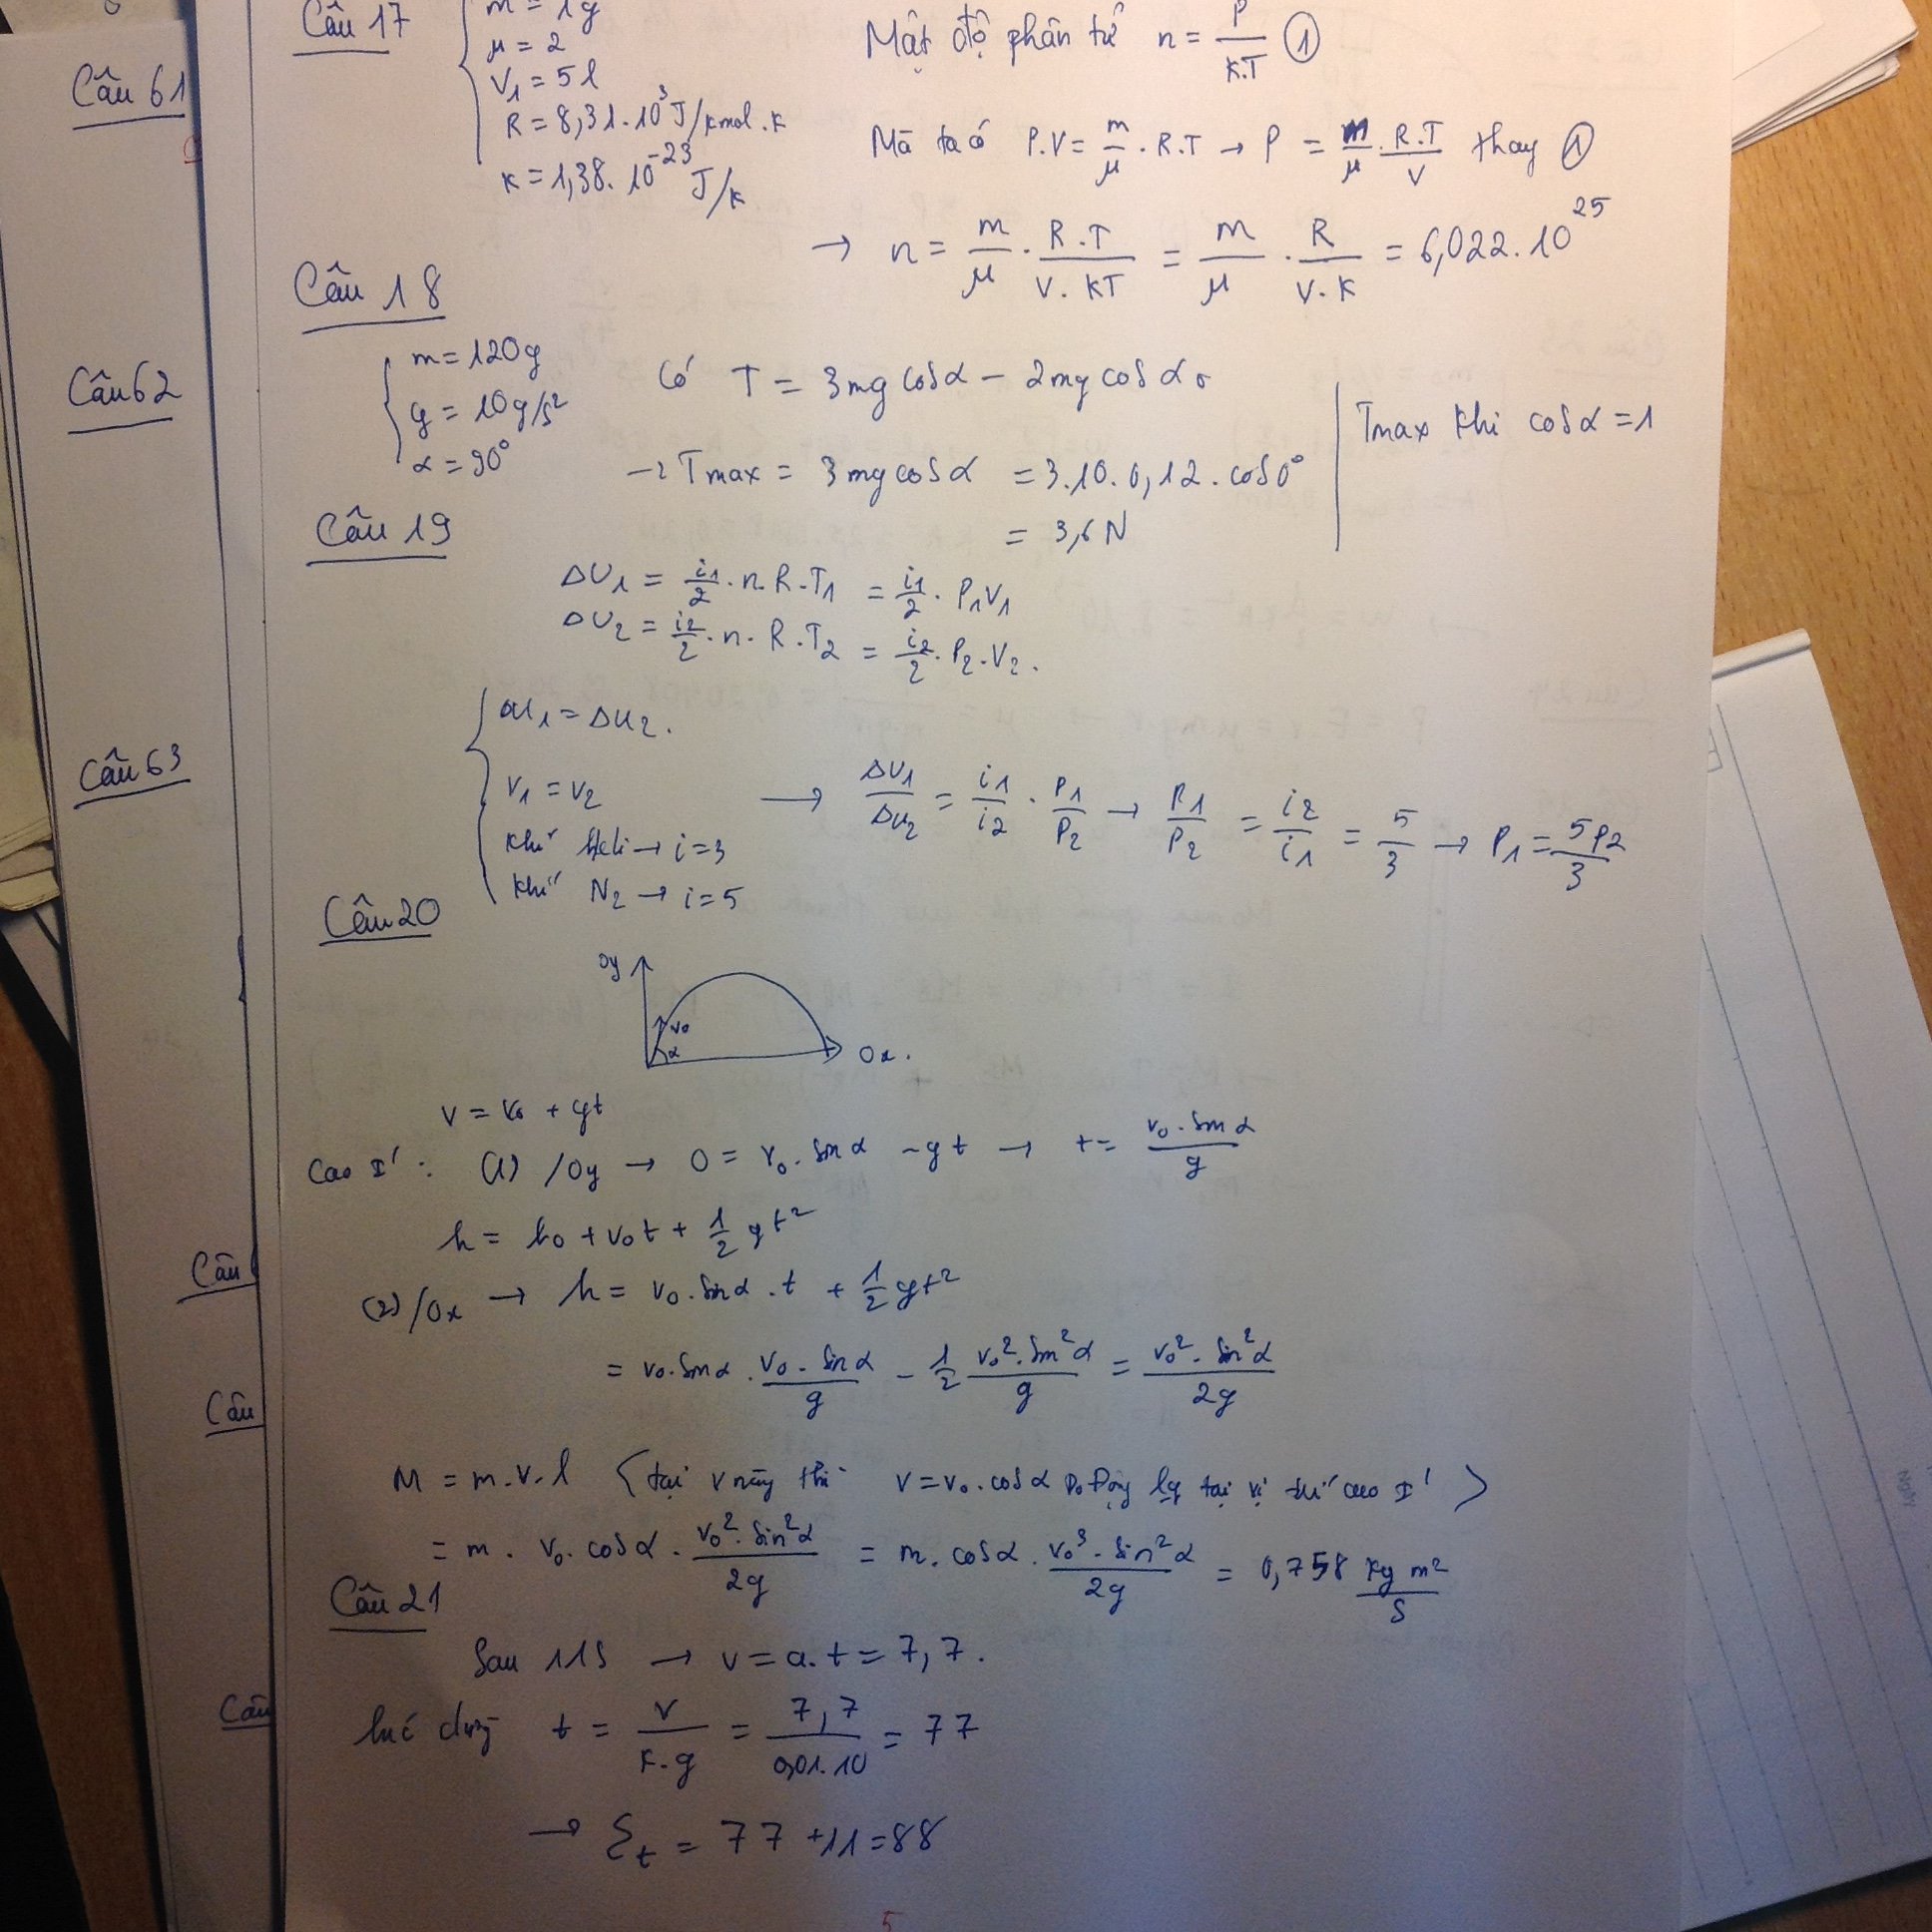 Câu 61
Câu 62
Câu 63
Câu
Câu
Câu
Câu 17
m = 1g
μ = 2
V1 = 5l
R = 8,31.10³ J/kmol.K
K = 1,38.10⁻²³ J/K
Mật độ phân tử n = P/K.T ①
Mà ta có P.V = m/μ . R.T → P = m/μ . R.T/V thay ①
→ n = m/μ . R.T/V.KT = m/μ . R/V.K = 6,022.10²⁵
Câu 18
m = 120g
g = 10g/s²
α = 90°
Có T = 3mg cosα – 2mg cosα₀
→ Tmax = 3mg cosα = 3.10.0,12.cos0°
= 3,6 N
Tmax khi cosα = 1
Câu 19
ΔU1 = i1/2 . n.R.T1 = i1/2 . P1V1
ΔU2 = i2/2 . n.R.T2 = i2/2 . P2.V2.
Δu1 = Δu2.
V1 = V2
Khí Heli → i = 3
Khí N2 → i = 5
→ ΔU1/Δu2 = i1/i2 . P1/P2 → P1/P2 = i2/i1 = 5/3 → P1 = 5P2/3
Câu 20
Oy
v₀
α
Ox.
v = v₀ + gt
Cao I' : (1) /Oy → 0 = v₀.sinα – gt → t = v₀.sinα/g
h = h₀ + v₀t + 1/2 gt²
(2) /Ox → h = v₀.sinα.t + 1/2 gt²
= v₀.sinα . v₀.sinα/g – 1/2 v₀².sin²α/g = v₀².sin²α/2g
M = m.v.l < tại v này thì v = v₀.cosα do động lg tại vị trí cao I' >
= m . v₀.cosα . v₀².sin²α/2g = m.cosα . v₀³.sin²α/2g = 0,758 kg m²/s
Câu 21
Sau 11s → v = a.t = 7,7.
lúc dừng t = v/k.g = 7,7/0,01.10 = 77
→ Σt = 77 + 11 = 88
5